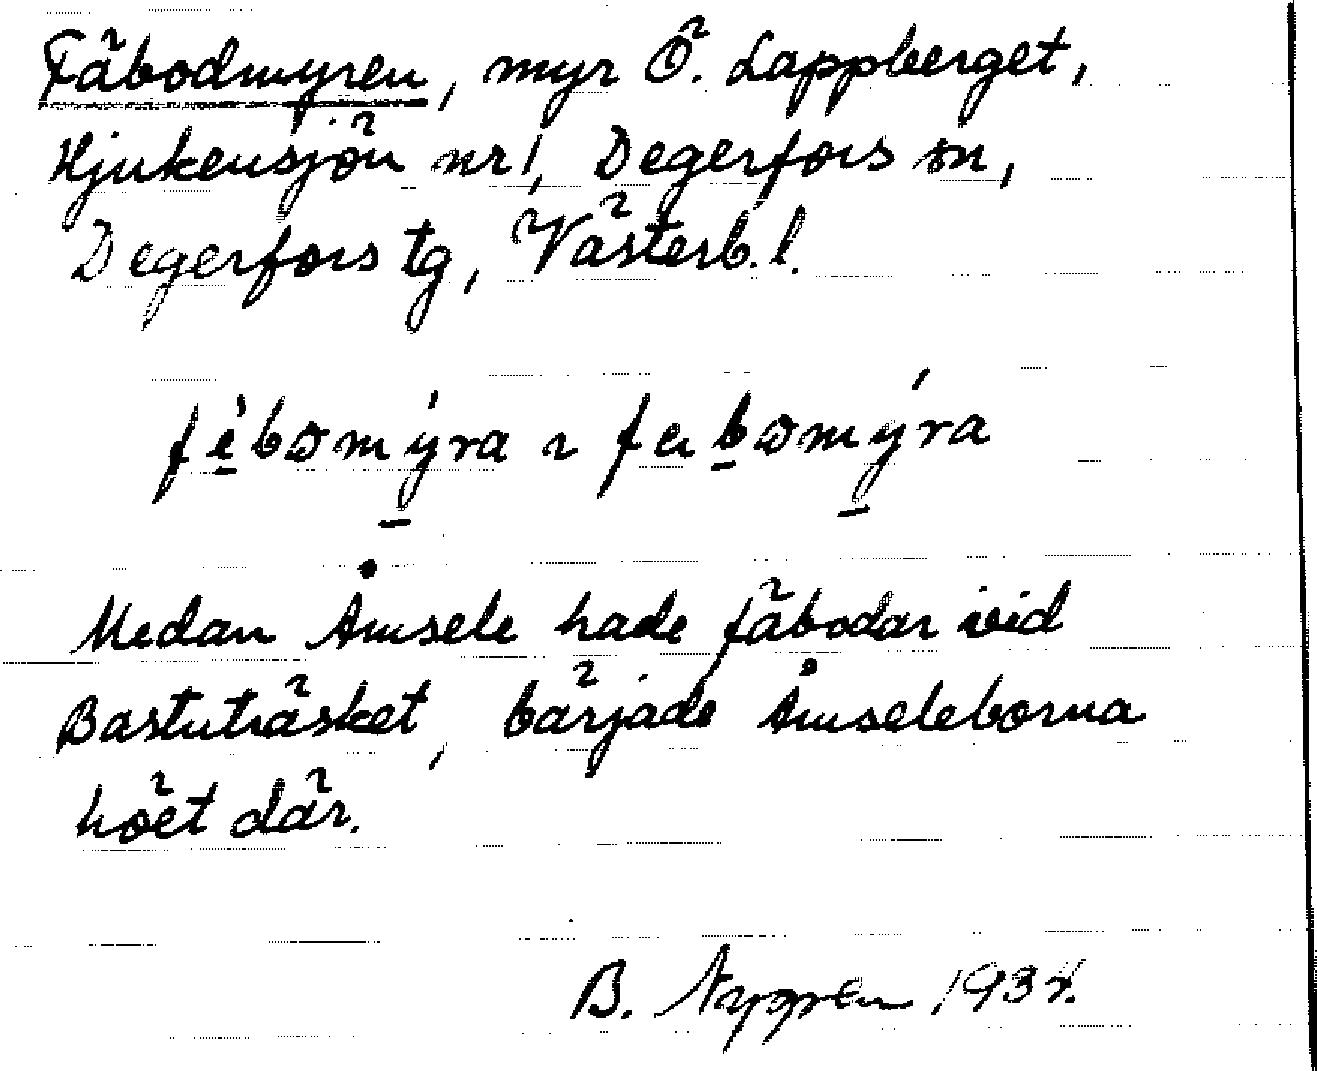 Fäbodmyren, myr Ö. Lappberget,
Hjukensjön nr 1, Degerfors sn,
Degerfors tg, Västerb. l.
Medan Åmsele hade fäbodar vid
Bastuträsket, bärjade Åmseleborna
höet där.
B. Nygren 1934.